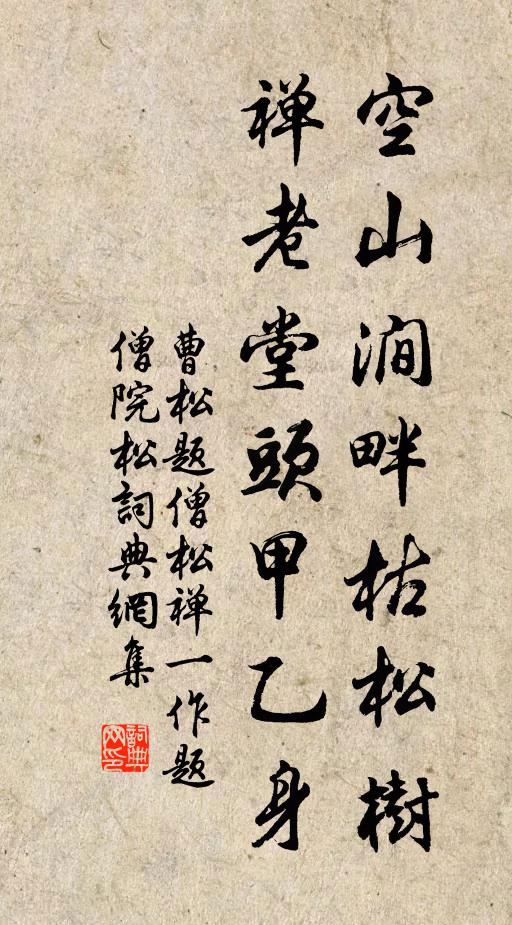 空山澗畔枯松樹
禅老堂頭甲乙身
曹松题僧松禅一作题
僧院松詞典網集
詞典
网印